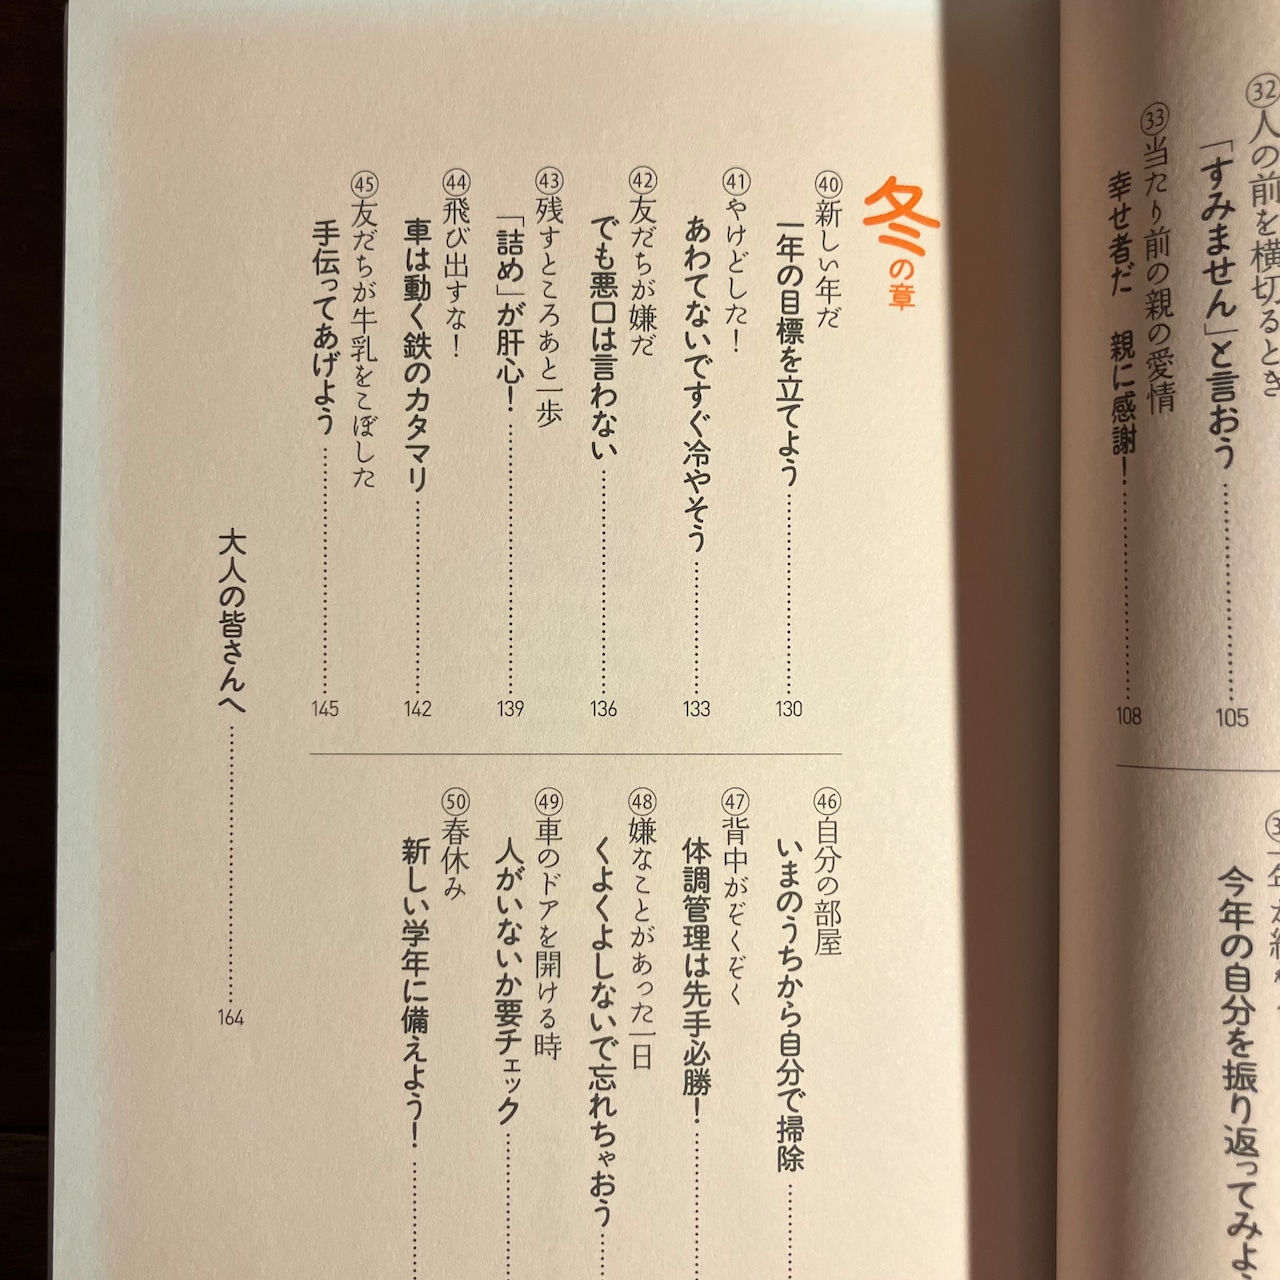 ㉜人の前を横切るとき
「すみません」と言おう……105
㉝当たり前の親の愛情
幸せ者だ 親に感謝！……108
今年の自分を振り返ってみよ
冬の章
㊵新しい年だ
一年の目標を立てよう……130
㊶やけどした！
あわてないですぐ冷やそう……133
㊷友だちが嫌だ
でも悪口は言わない……136
㊸残すところあと一歩
「詰め」が肝心！……139
㊹飛び出すな！
車は動く鉄のカタマリ……142
㊺友だちが牛乳をこぼした
手伝ってあげよう……145
㊻自分の部屋
いまのうちから自分で掃除……
㊼背中がぞくぞく
体調管理は先手必勝！……
㊽嫌なことがあった一日
くよくよしないで忘れちゃおう……
㊾車のドアを開ける時
人がいないか要チェック……
㊿春休み
新しい学年に備えよう！……
大人の皆さんへ……164